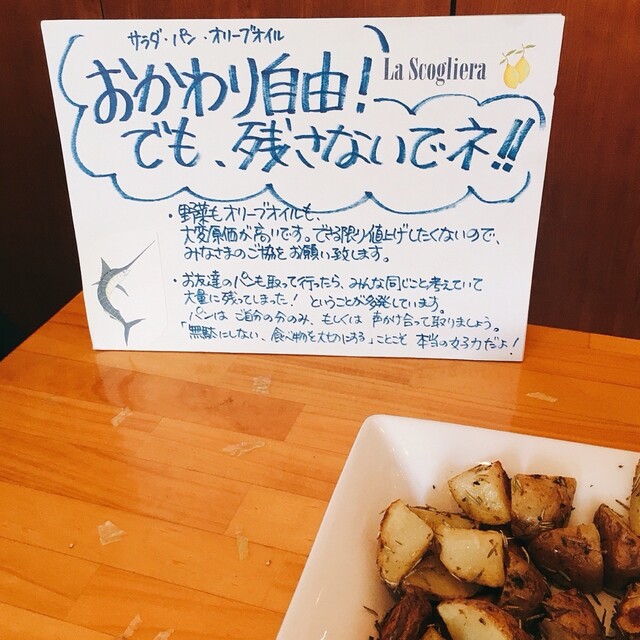 サラダ・パン・オリーブオイル
La Scogliera
おかわり自由!
でも、残さないでネ!!
・野菜もオリーブオイルも、
大変原価が高いです。できる限り値上げしたくないので、
みなさまのご協力をお願い致します。
・お友達のパンも取って行ったら、みんな同じこと考えていて
大量に残ってしまった! ということが多発しています。
パンは ご自分の分のみ、もしくは 声かけ合って取りましょう。
「無駄にしない、食べ物を大切にする」ことこそ 本当の女子力だよ!